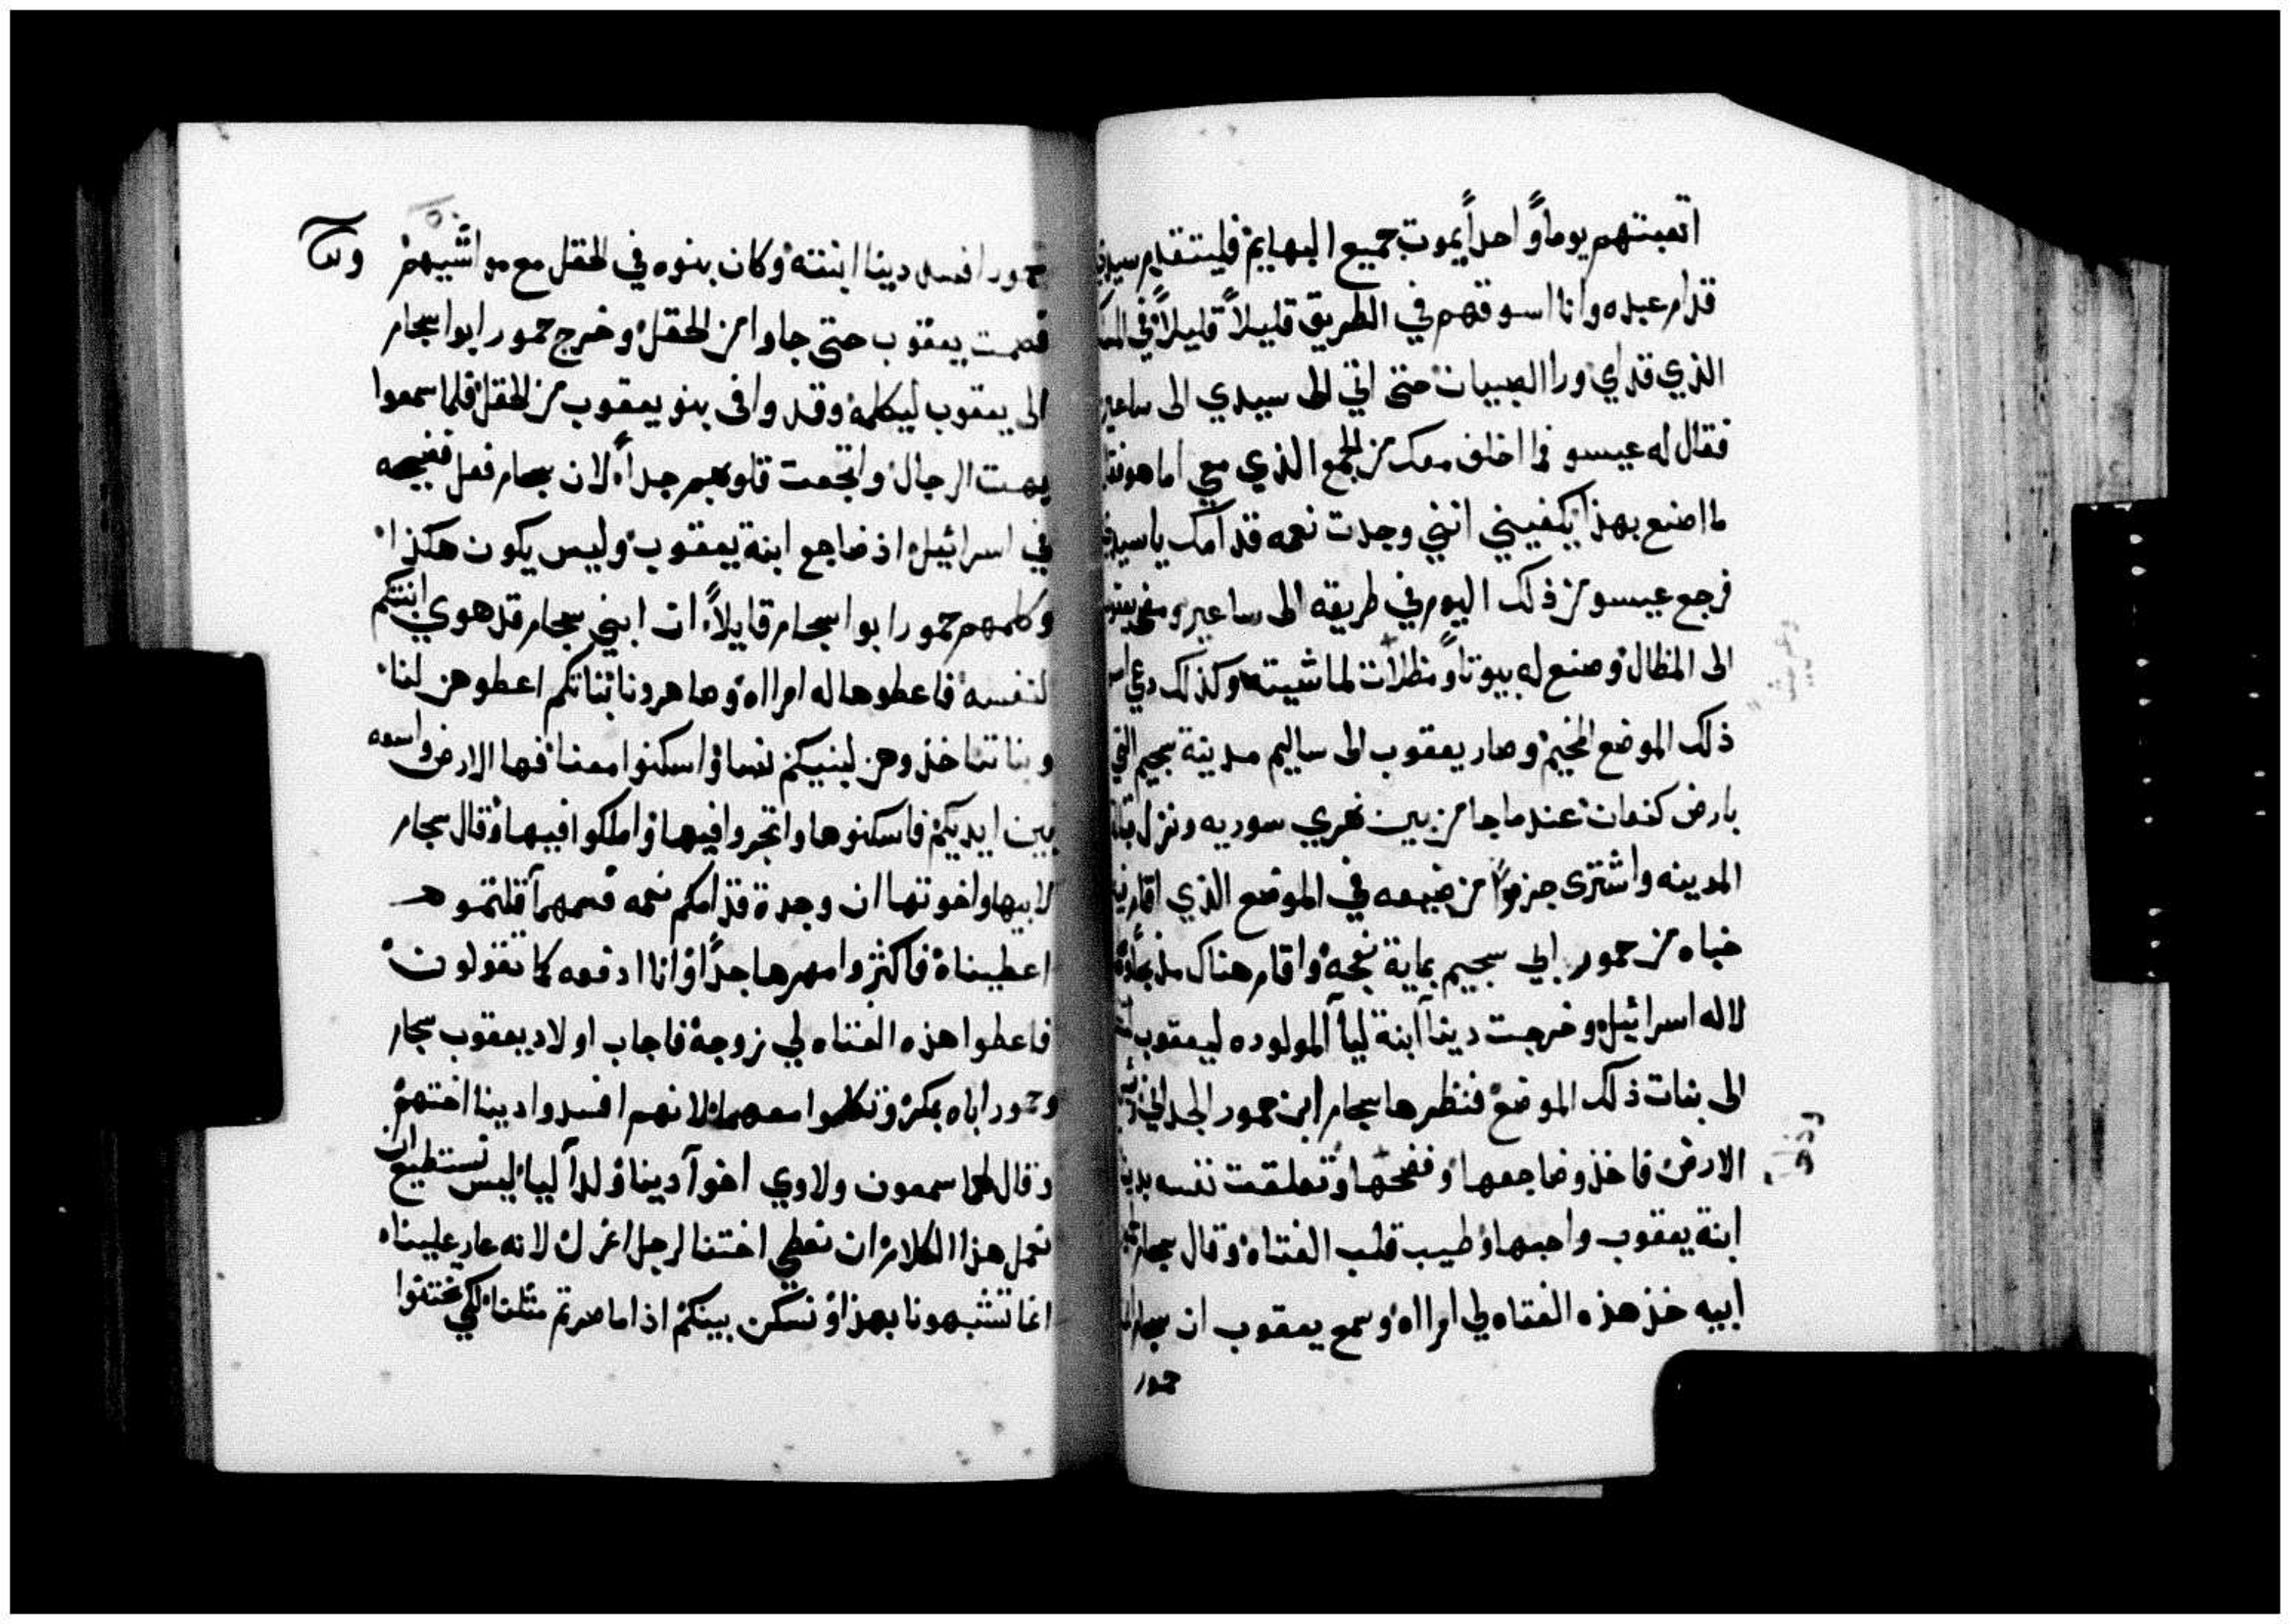 اتعبتهم يوماً واحداً يموت جميع البهايم فليتقدم سيدي
قدام عبده وانا اسوقهم في الطريق قليلاً قليلاً في
الذي قدامي ورا الصبيان حتى اتي الى سيدي الى ساعير
فقال له عيسو فما اخلف معك من الجمع الذي معي اما هو فقال
لما اصنع بهذا يكفيني انني وجدت نعمه قدامك يا سيدي
فرجع عيسو من ذلك اليوم في طريقه الى ساعير ومضى يعقوب
الى المظال وصنع له بيوتاً ومظلات لماشيته وكذلك دعى اسم
ذلك الموضع المخيم وصار يعقوب الى ساليم مدينة سجيم التي
بارض كنعان عندما جا من بين نهري سوريه ونزل قبالة
المدينه واشترى جزواً من ضيعه في الموضع الذي اقام فيه
خباه من حمور ابي سجيم بماية نعجه واقام هناك مذبحاً ودعا
لاله اسرائيل وخرجت دينا ابنة ليا المولوده ليعقوب
الى بنات ذلك الموضع فنظرها سجام ابن حمور
الارض فاخذ وضاجعها وفضحها وتعلقت نفسه بدينا
ابنة يعقوب واحبها وطيب قلب الفتاه وقال سجام
ابيه خذ هذه الفتاه لي امراه وسمع يعقوب ان سجام ابن
حمور
حمور افسد دينا ابنته وكان بنوه في الحقل مع مواشيهم
فصمت يعقوب حتى جاوا من الحقل وخرج حمور ابوا سجام
الى يعقوب ليكلمه وقد وافى بنو يعقوب من الحقل فلما سمعوا
بهت الرجال واتجعت قلوبهم جداً لان سجام فعل فضيحه
في اسرائيل اذ ضاجع ابنة يعقوب وليس يكون هكذا
وكلمهم حمور ابوا سجام قايلاً ان ابني سجام قد هوي ابنتكم
لنفسه فاعطوها له امراه وصاهرونا بناتكم اعطوهن لنا
وبناتنا خذوهن لبنيكم نسا واسكنوا معنا فها الارض واسعه
بين ايديكم فاسكنوها واتجروا فيها واملكوا فيها وقال سجام
لابيها واخوتها ان وجدة قدامكم نعمه فمهما قلتموه
اعطيناه فاكثروا مهرها جداً وانا ادفعه كما تقولون
فاعطوا هذه الفتاه لي زوجة فاجاب اولاد يعقوب سجام
وحمور اباه بمكر وتكلموا معهما لانهم افسدوا دينا اختهم
وقال لهما سمعون ولاوي اخوا دينا ولدا ليا ليس نستطيع ان
نعمل هذا الكلام ان نعطي اختنا لرجل اغرل لانه عار علينا
انما تشبهونا بهذا ونسكن بينكم اذا ما صرتم مثلنا لكي تختتنوا